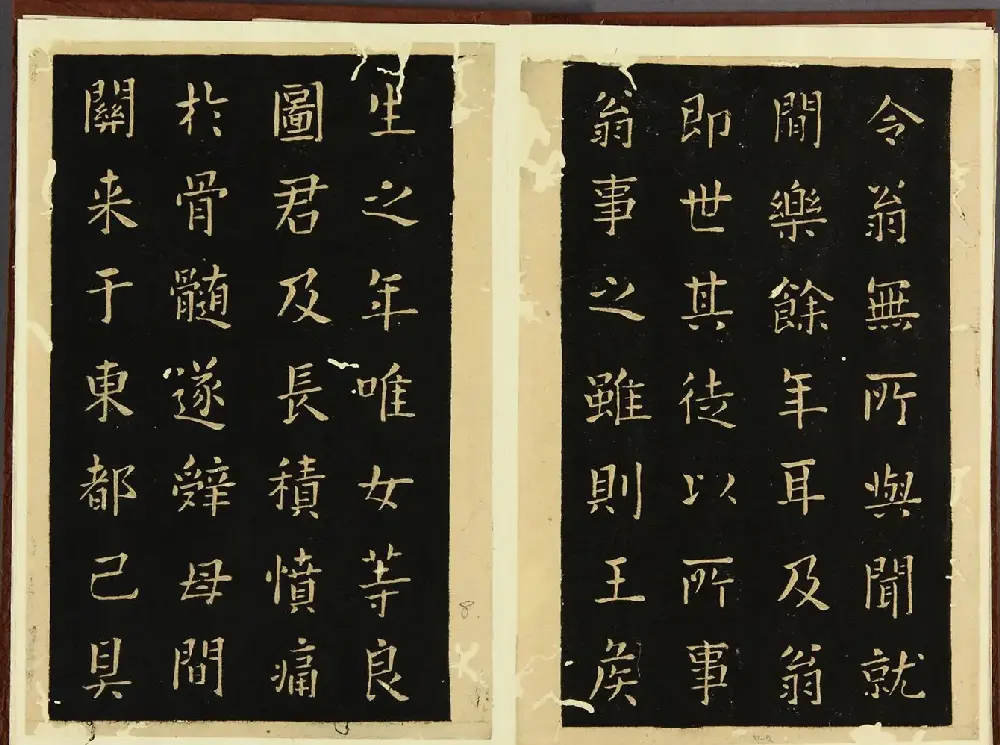 令翁無所與聞就
間樂餘年耳及翁
即世其徒以所事
翁事之雖則王侯
生之年唯女等良
圖君及長積憤痛
於骨髓遂辭母間
關来于東都己具
8.